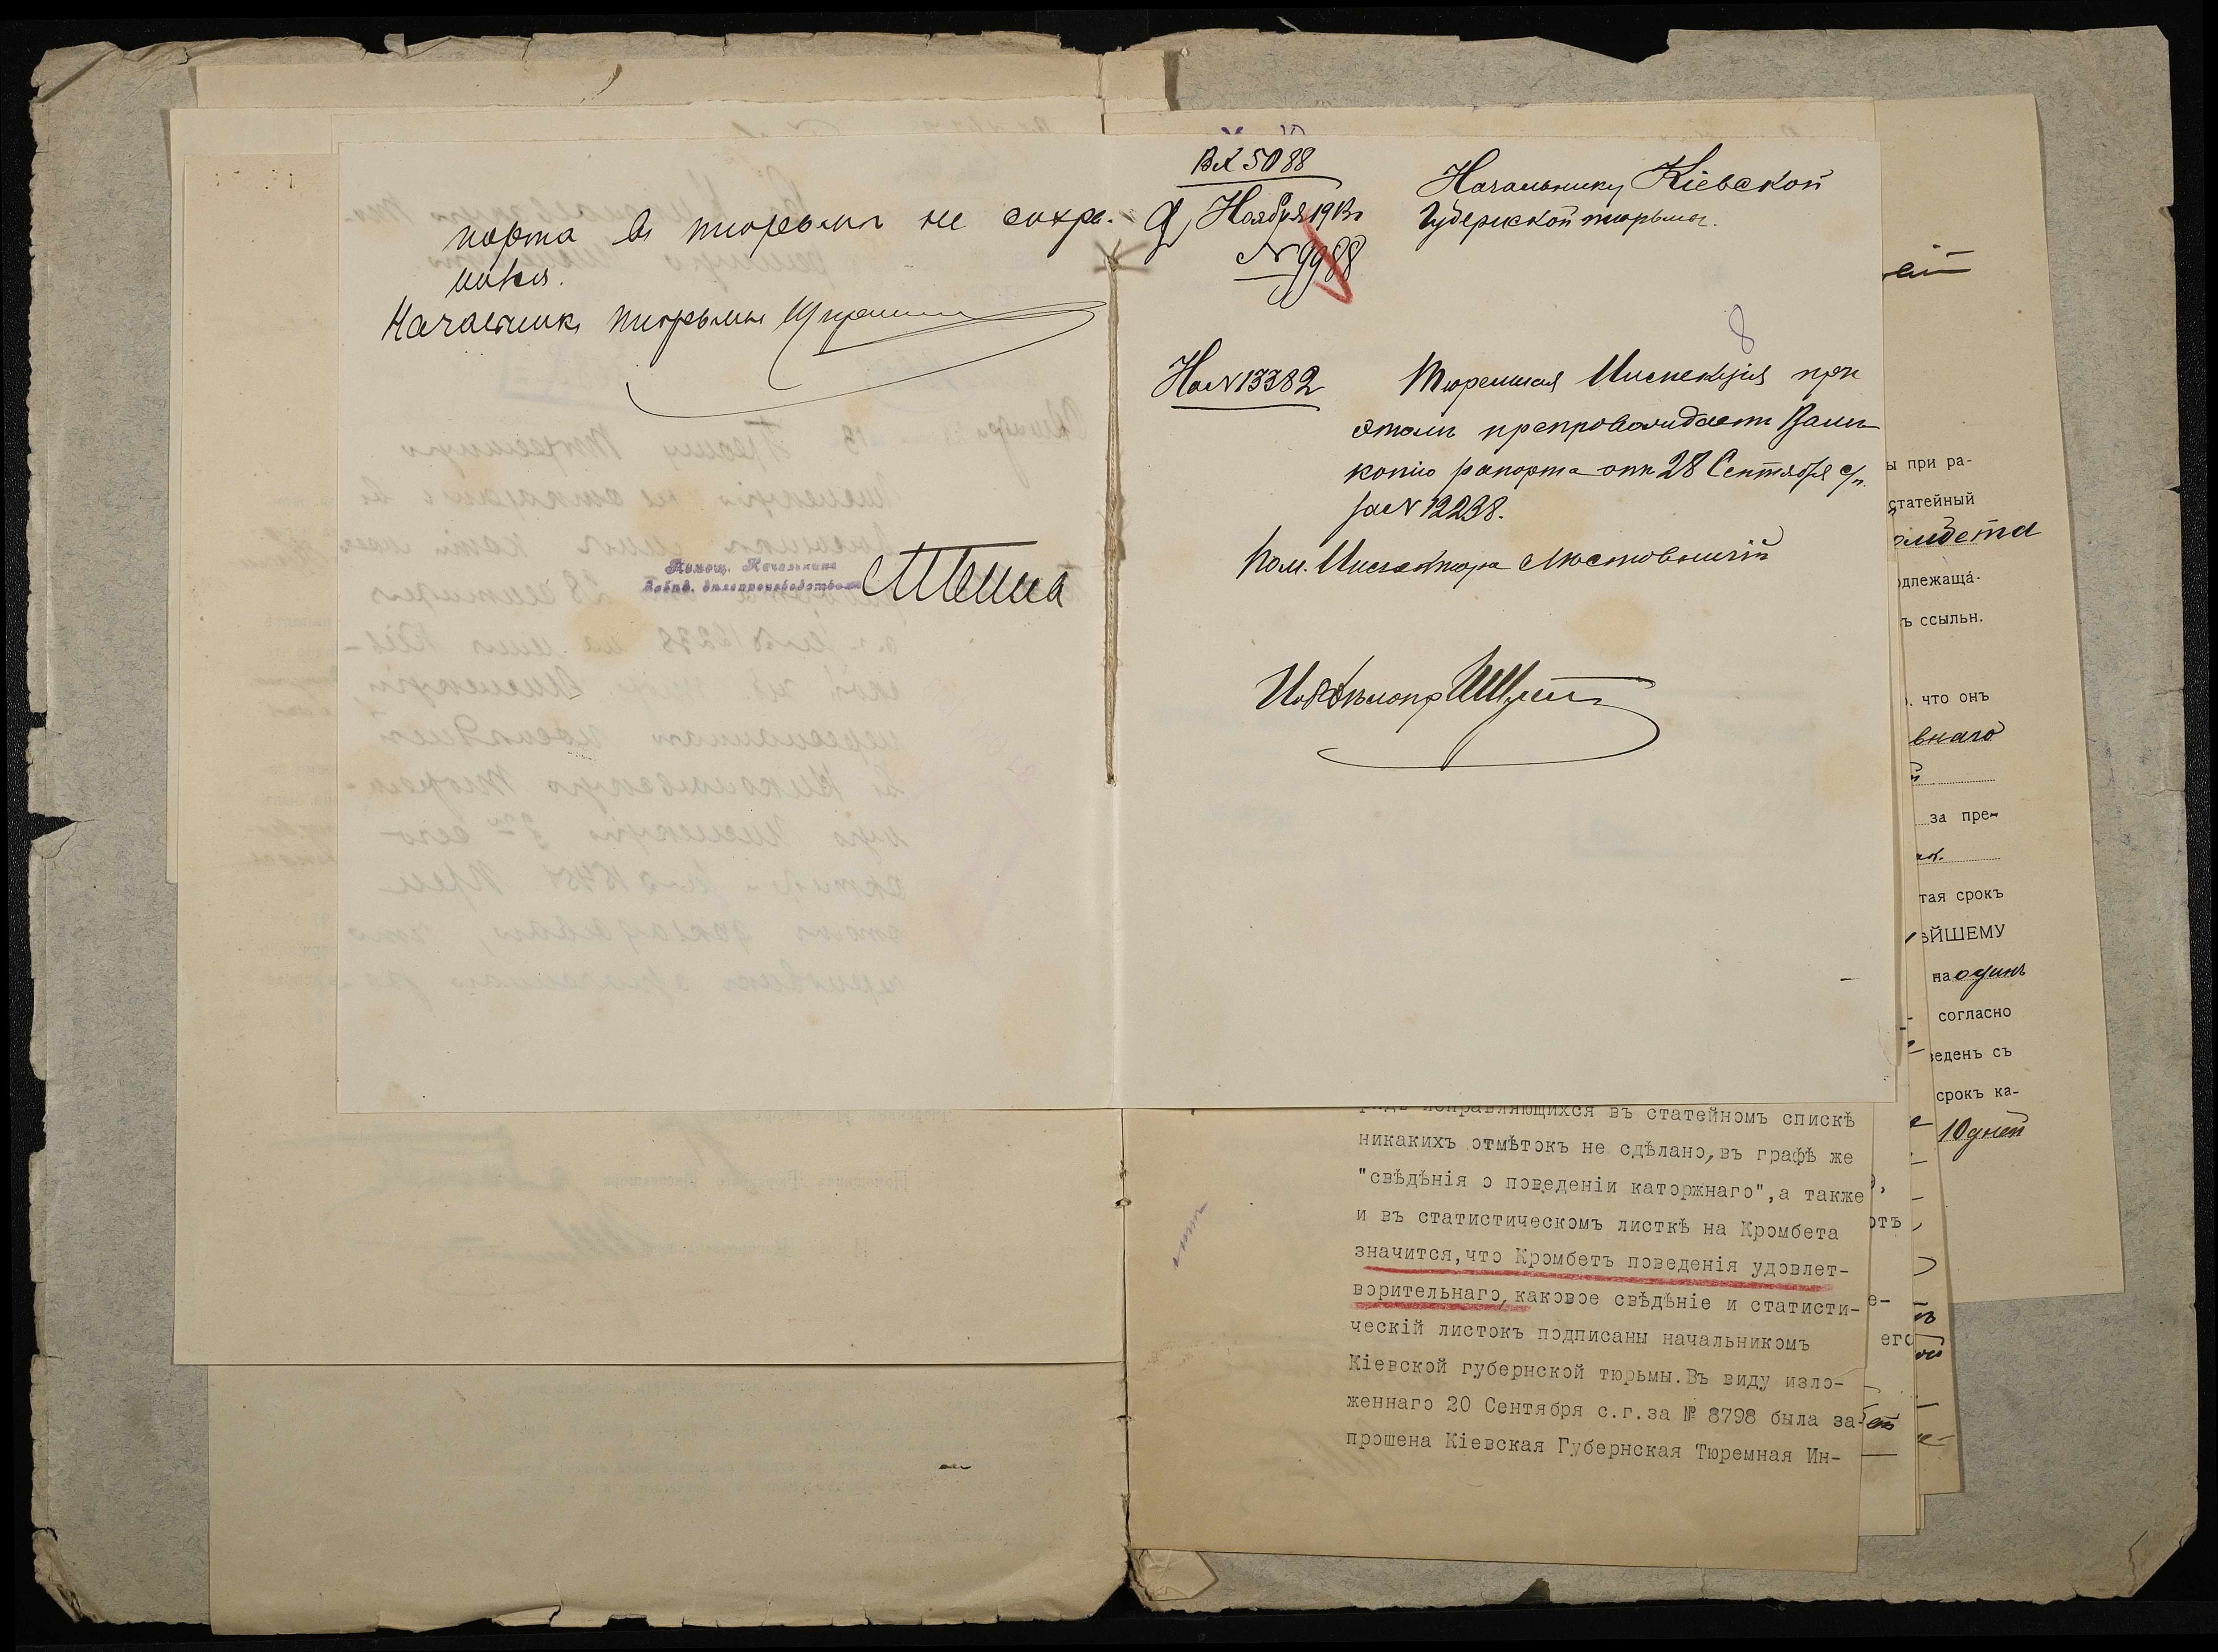 порта въ тюрьмѣ не сохра-
нился.
Начальникъ тюрьмы
Помощ. Начальника
Завѣд. дѣлопроизводствомъ
Вх 5088
9 Ноября 1913 г
№ 9988
Начальнику Кіевской
Губернской тюрьмы.
8
На № 13382
Тюремная Инспекція при
этомъ препровождаетъ Вамъ
копію рапорта отъ 28 Сентября с/г.
за № 12238.
Пом. Инспектора
исправляющихся въ статейномъ спискѣ
никакихъ отмѣтокъ не сдѣлано,въ графѣ же
"свѣдѣнія о поведеніи каторжнаго",а также
и въ статистическомъ листкѣ на Кромбета
значится,что Кромбетъ поведенія удовлет-
ворительнаго,каковое свѣдѣніе и статисти-
ческій листокъ подписаны начальникомъ
Кіевской губернской тюрьмы.Въ виду изло-
женнаго 20 Сентября с.г.за № 8798 была за
прошена Кіевская Губернская Тюремная Ин-
ы при ра-
статейный
одлежащá-
ъ ссыльн.
что онъ
внаго
за пре-
тая срокъ
ѢЙШЕМУ
на одинъ
согласно
веденъ съ
срокъ ка-
10 дней
отъ
его